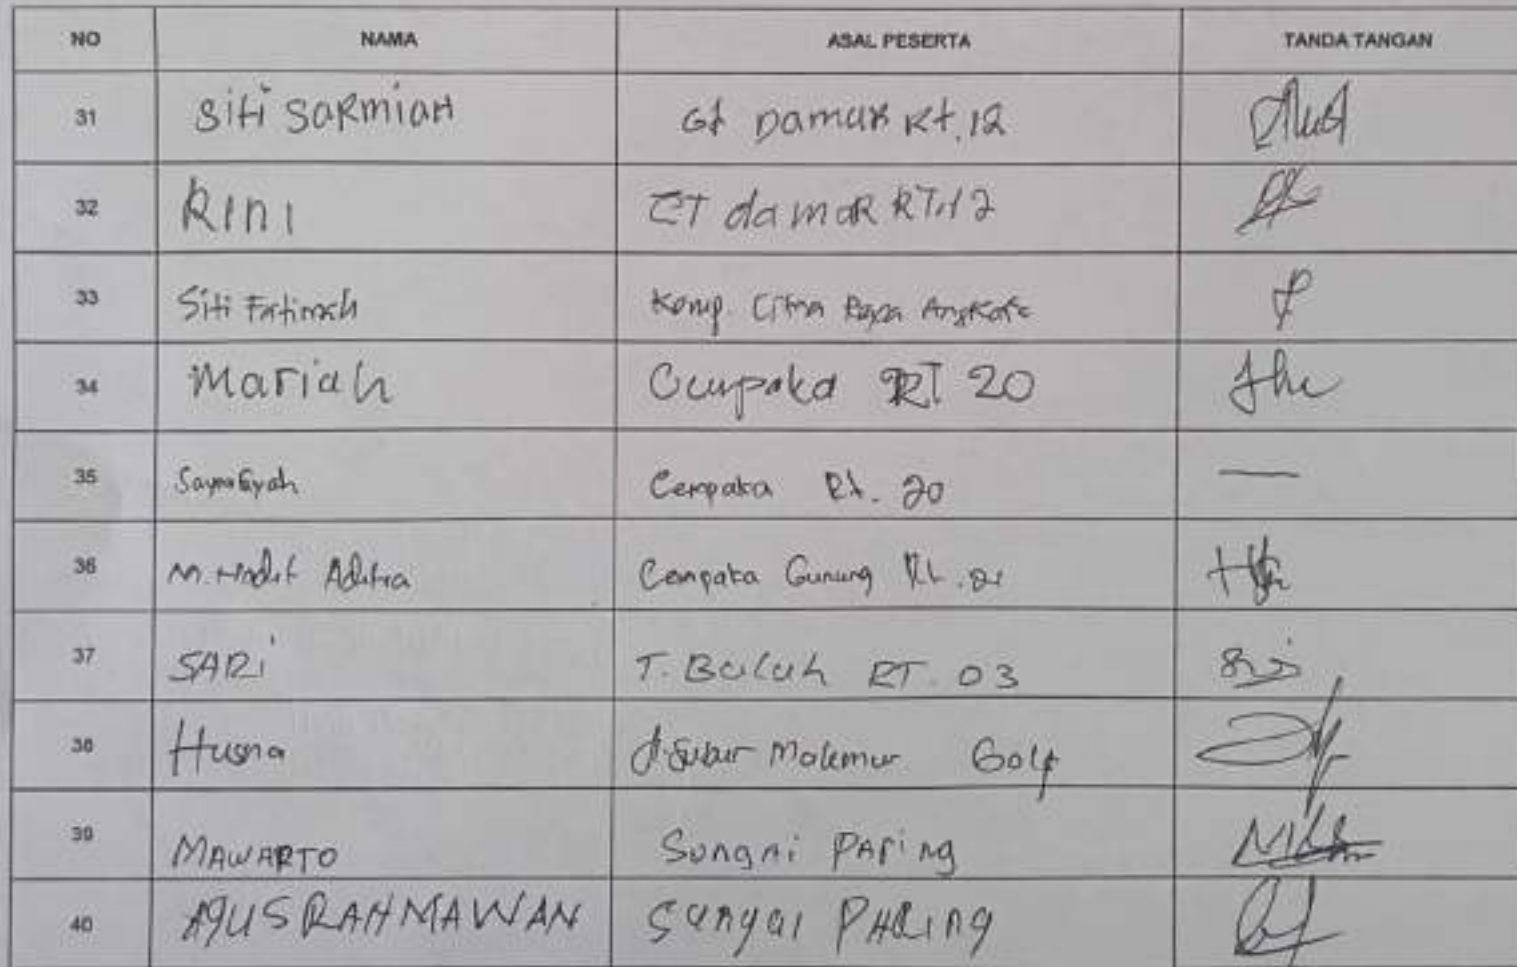 NO NAMA ASAL PESERTA TANDA TANGAN
31 Siti SaRmiaH Gt Damar Rt.12
32 RINI GT damaR RT.12
33 Siti Fatimah Komp. Citra Raya Angkasa
34 Mariah Cempaka RT 20
35 Cempaka Rt. 20
36 M. Aditia Cempaka Gunung Rt.
37 SARi T. Buluh RT. 03
38 Husna Jl. Subur Makmur Golf
39 MAWARTO Sungai PAring
40 AgUS RAHMAWAN Sungai PARing